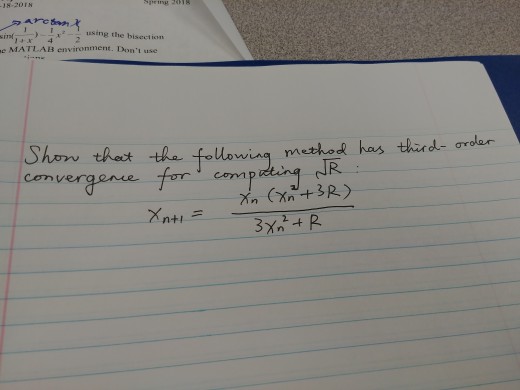 -18-2018
Spring 2018
arctan x
using the bisection
MATLAB environment. Don't use
Show that the following method has third-order
convergence for computing √R :
xₙ₊₁ = xₙ (xₙ² + 3R) / 3xₙ² + R